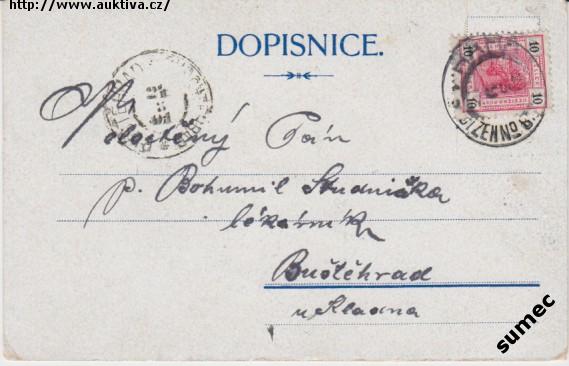 http://www.auktiva.cz/
DOPISNICE.
10 10
10 10
Velectěný Pán
p. Bohumil Studnička
lékárník
Buštěhrad
u Kladna
sumec